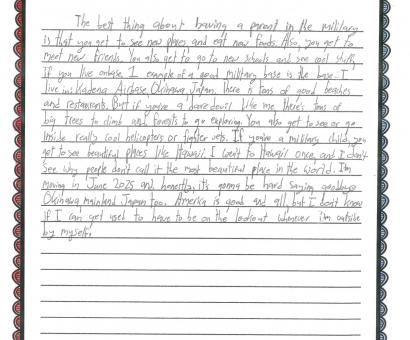 The best thing about having a parent in the military
is that you get to see new places and eat new foods. Also, you get to
meet new friends. You als get to go to new schools and see cool stuff
If you live onbase. 1 example of a good military base is the base I
live in: Kadena Airbase, Okinawa, Japan. There is tons of good beaches
and restaurants. But if you're a daredevil like me, there's tons of
big trees to climb and forests to go exploring. You also get to see or go
inside really cool helicopters or fighter jets. If you're a military child, you
got to see beautiful places like Hawaii. I went to Hawaii once, and I don't
see why people don't call it the most beautiful place in the world. I'm
moving in June 2025 and honestly, it's gonna be hard saying goodbye
Okinawa mainland Japan too. America is good and all, but I don't know
if I can get used to have to be on the lookout whenever i'm outside
by myself.